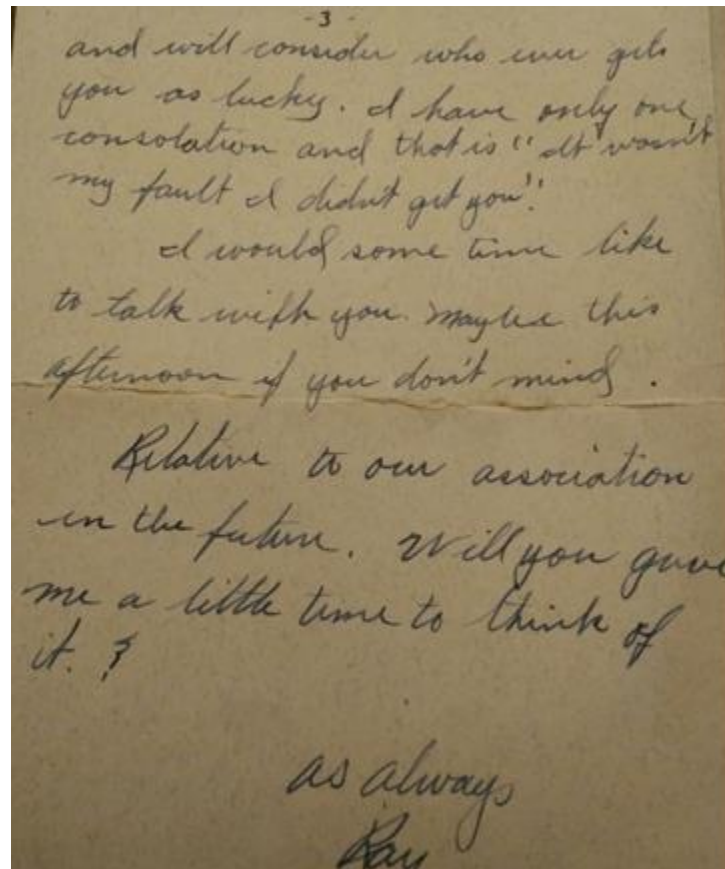 -3-
and will consider who ever gets
you as lucky. I have only one
consolation and that is "It wasn't
my fault I didn't get you".
I would some time like
to talk with you. Maybe this
afternoon if you don't mind.
Relative to our association
in the future. Will you give
me a little time to think of
it.?
as always
Ray